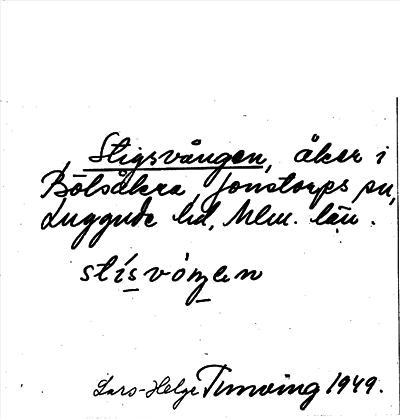 Stigsvången, åker i
Bölsåkra, Jonstorps sn,
Luggude hd, Mlm. län.
stísvóŋen
Lars-Helge Tunving 1949.